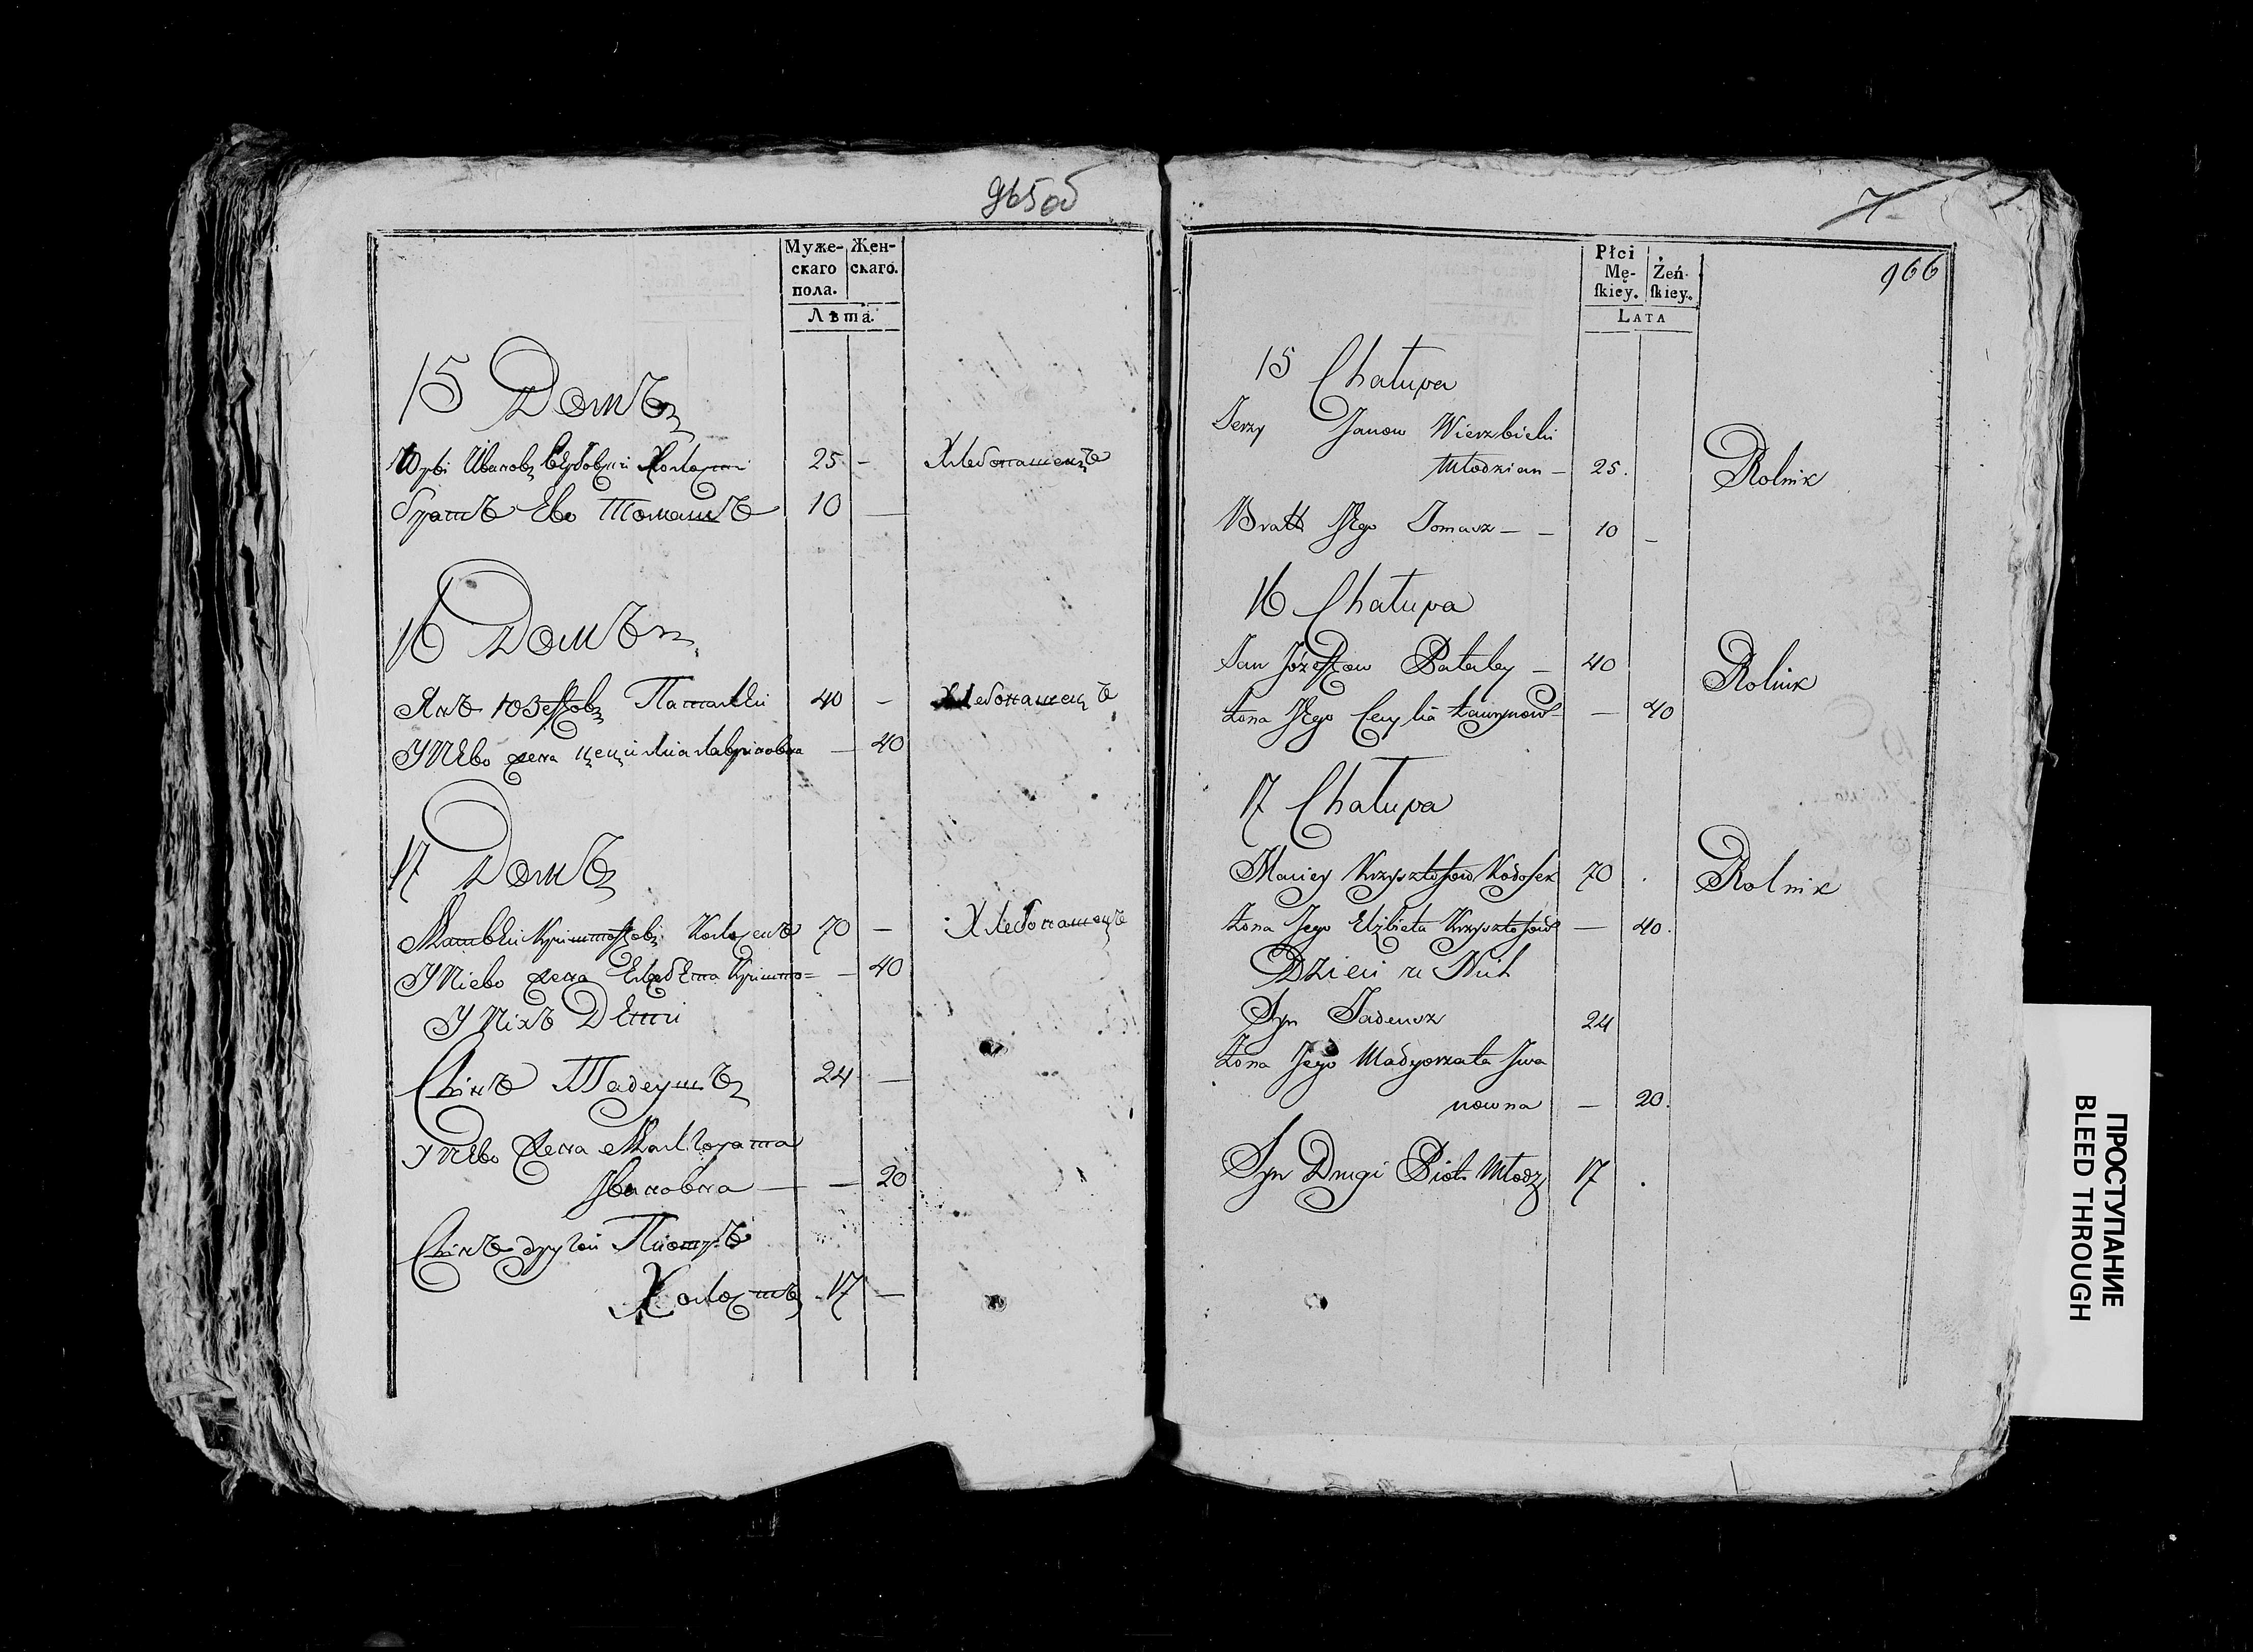 965об
Муже-
скаго
пола.
Жен-
скаго.
Лѣта.
15 Домъ
Юрѣи Ивановъ Вержбовски Холости 25 - Хлебопашецъ
братъ Ево Томашъ 10 —
16 Домъ
Янъ Юзефовъ Паталѣи 40 - Хлебопашецъ
У нЕво жена цецилиа лавриновна — 40
17 Домъ
Матвѣи Криштофовъ 70 — Хлебопашецъ
У Нiево жена Елжбѣта Кришто= — 40
У Нихъ Дѣти
Сынъ Тадеушъ 24 —
У нЕво жена Малгората
Ивановна — — 20
Сынъ другои Пиотръ
Холостъ 17 —
7
966
Płci
Mę-
ſkiey.
Żeń-
ſkiey.
LATA
15 Chałupa
Jerzy Janow Wierzbicki
Młodzian — 25. Rolnik
Bratt JEgo Tomasz — — 10 —
16 Chałupa
Jan Józeffow Pataley — 40 Rolnik
Żona JEgo Cecylia Ławrynow — 40
17 Chałupa
Maciey Krzysztofow Kodosek 70 . Rolnik
Żona Jego Elżbieta Krzysztofow — 40.
Dzieci u Nich
Syn Tadeusz 24
Żona Jego Madgorzata Jwa
nowna — 20.
Syn Drugi Piotr Młodz 17 .
ПРОСТУПАНИЕ
BLEED THROUGH